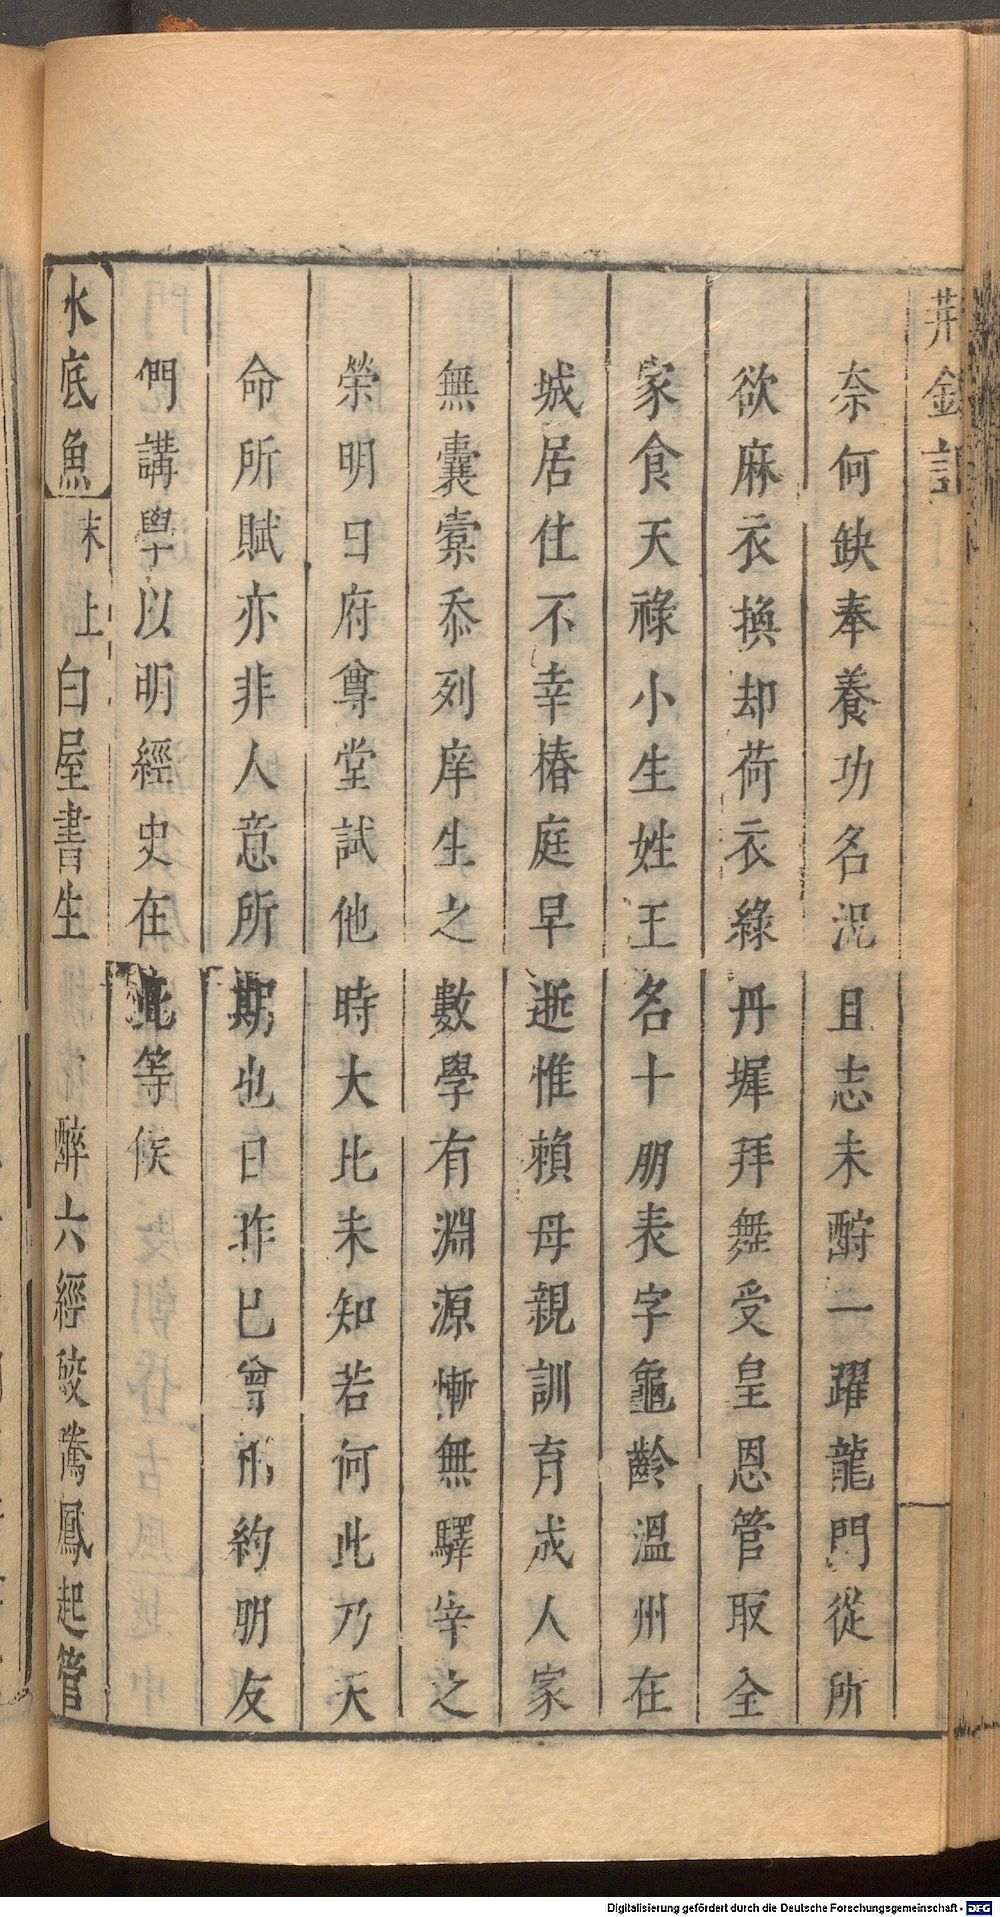 荆釵記
奈何缺奉養功名況且志未酧一躍龍門從所
欲麻衣換却荷衣綠丹墀拜舞受皇恩管取全
家食天祿小生姓王名十朋表字龜齡溫州在
城居仕不幸椿庭早逝惟賴母親訓育成人家
無囊橐忝列庠生之數學有淵源慚無驛宰之
榮明日府尊堂試他時大比未知若何此乃天
命所賦亦非人意所期也日昨已曾相約朋友
們講學以明經史在此等候
水底魚 末上白屋書生 醉六經蛟騰鳳起管
Digitalisierung gefördert durch die Deutsche Forschungsgemeinschaft - DFG